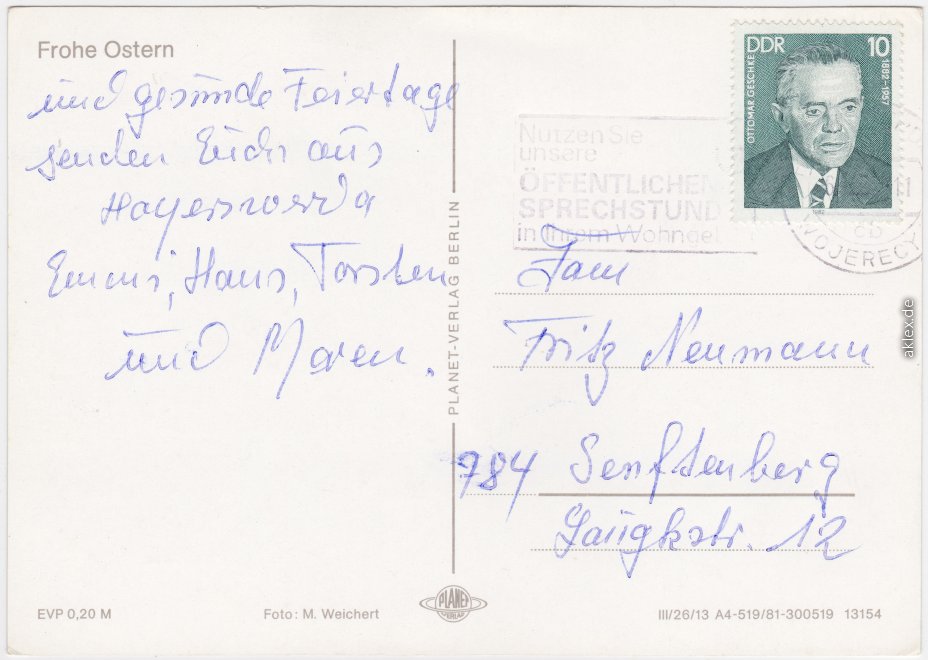 Frohe Ostern
und gesunde Feiertage
senden Euch aus
Hoyerswerda
Emmi, Hans, Torsten
und Maren.
PLANET-VERLAG BERLIN
DDR 10
OTTOMAR GESCHKE
1882-1957
Nutzen Sie
unsere
ÖFFENTLICHEN
SPRECHSTUND
in Ihrem Wohngebi
WOJERECY
Fam
Fritz Neumann
784 Senftenberg
12
EVP 0,20 M
Foto: M. Weichert
PLANET
VERLAG
III/26/13 A4-519/81-300519 13154
aklex.de